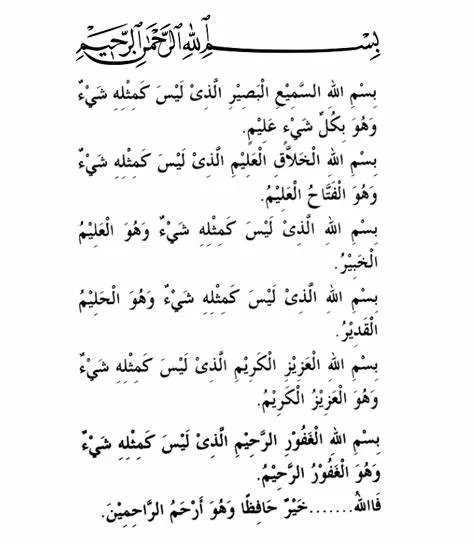 بِسْمِ اللهِ الرَّحْمٰنِ الرَّحِيْمِ
بِسْمِ اللهِ السَّمِيْعِ الْبَصِيْرِ الَّذِىْ لَيْسَ كَمِثْلِهِ شَيْءٌ
وَهُوَ بِكُلِّ شَيْءٍ عَلِيْمٍ.
بِسْمِ اللهِ الْخَلاَّقِ الْعَلِيْمِ الَّذِىْ لَيْسَ كَمِثْلِهِ شَيْءٌ
وَهُوَ الْفَتَّاحُ الْعَلِيْمُ.
بِسْمِ اللهِ الَّذِىْ لَيْسَ كَمِثْلِهِ شَيْءٌ وَهُوَ الْعَلِيْمُ
الْخَبِيْرُ.
بِسْمِ اللهِ الَّذِىْ لَيْسَ كَمِثْلِهِ شَيْءٌ وَهُوَ الْحَلِيْمُ
الْقَدِيْرُ.
بِسْمِ اللهِ الْعَزِيْزِ الْكَرِيْمِ الَّذِىْ لَيْسَ كَمِثْلِهِ شَيْءٌ
وَهُوَ الْعَزِيْزُ الْكَرِيْمُ.
بِسْمِ اللهِ الْغَفُوْرِ الرَّحِيْمِ الَّذِىْ لَيْسَ كَمِثْلِهِ شَيْءٌ
وَهُوَ الْغَفُوْرُ الرَّحِيْمُ.
فَاللهُ.......خَيْرٌ حَافِظًا وَهُوَ أَرْحَمُ الرَّاحِمِيْنَ.